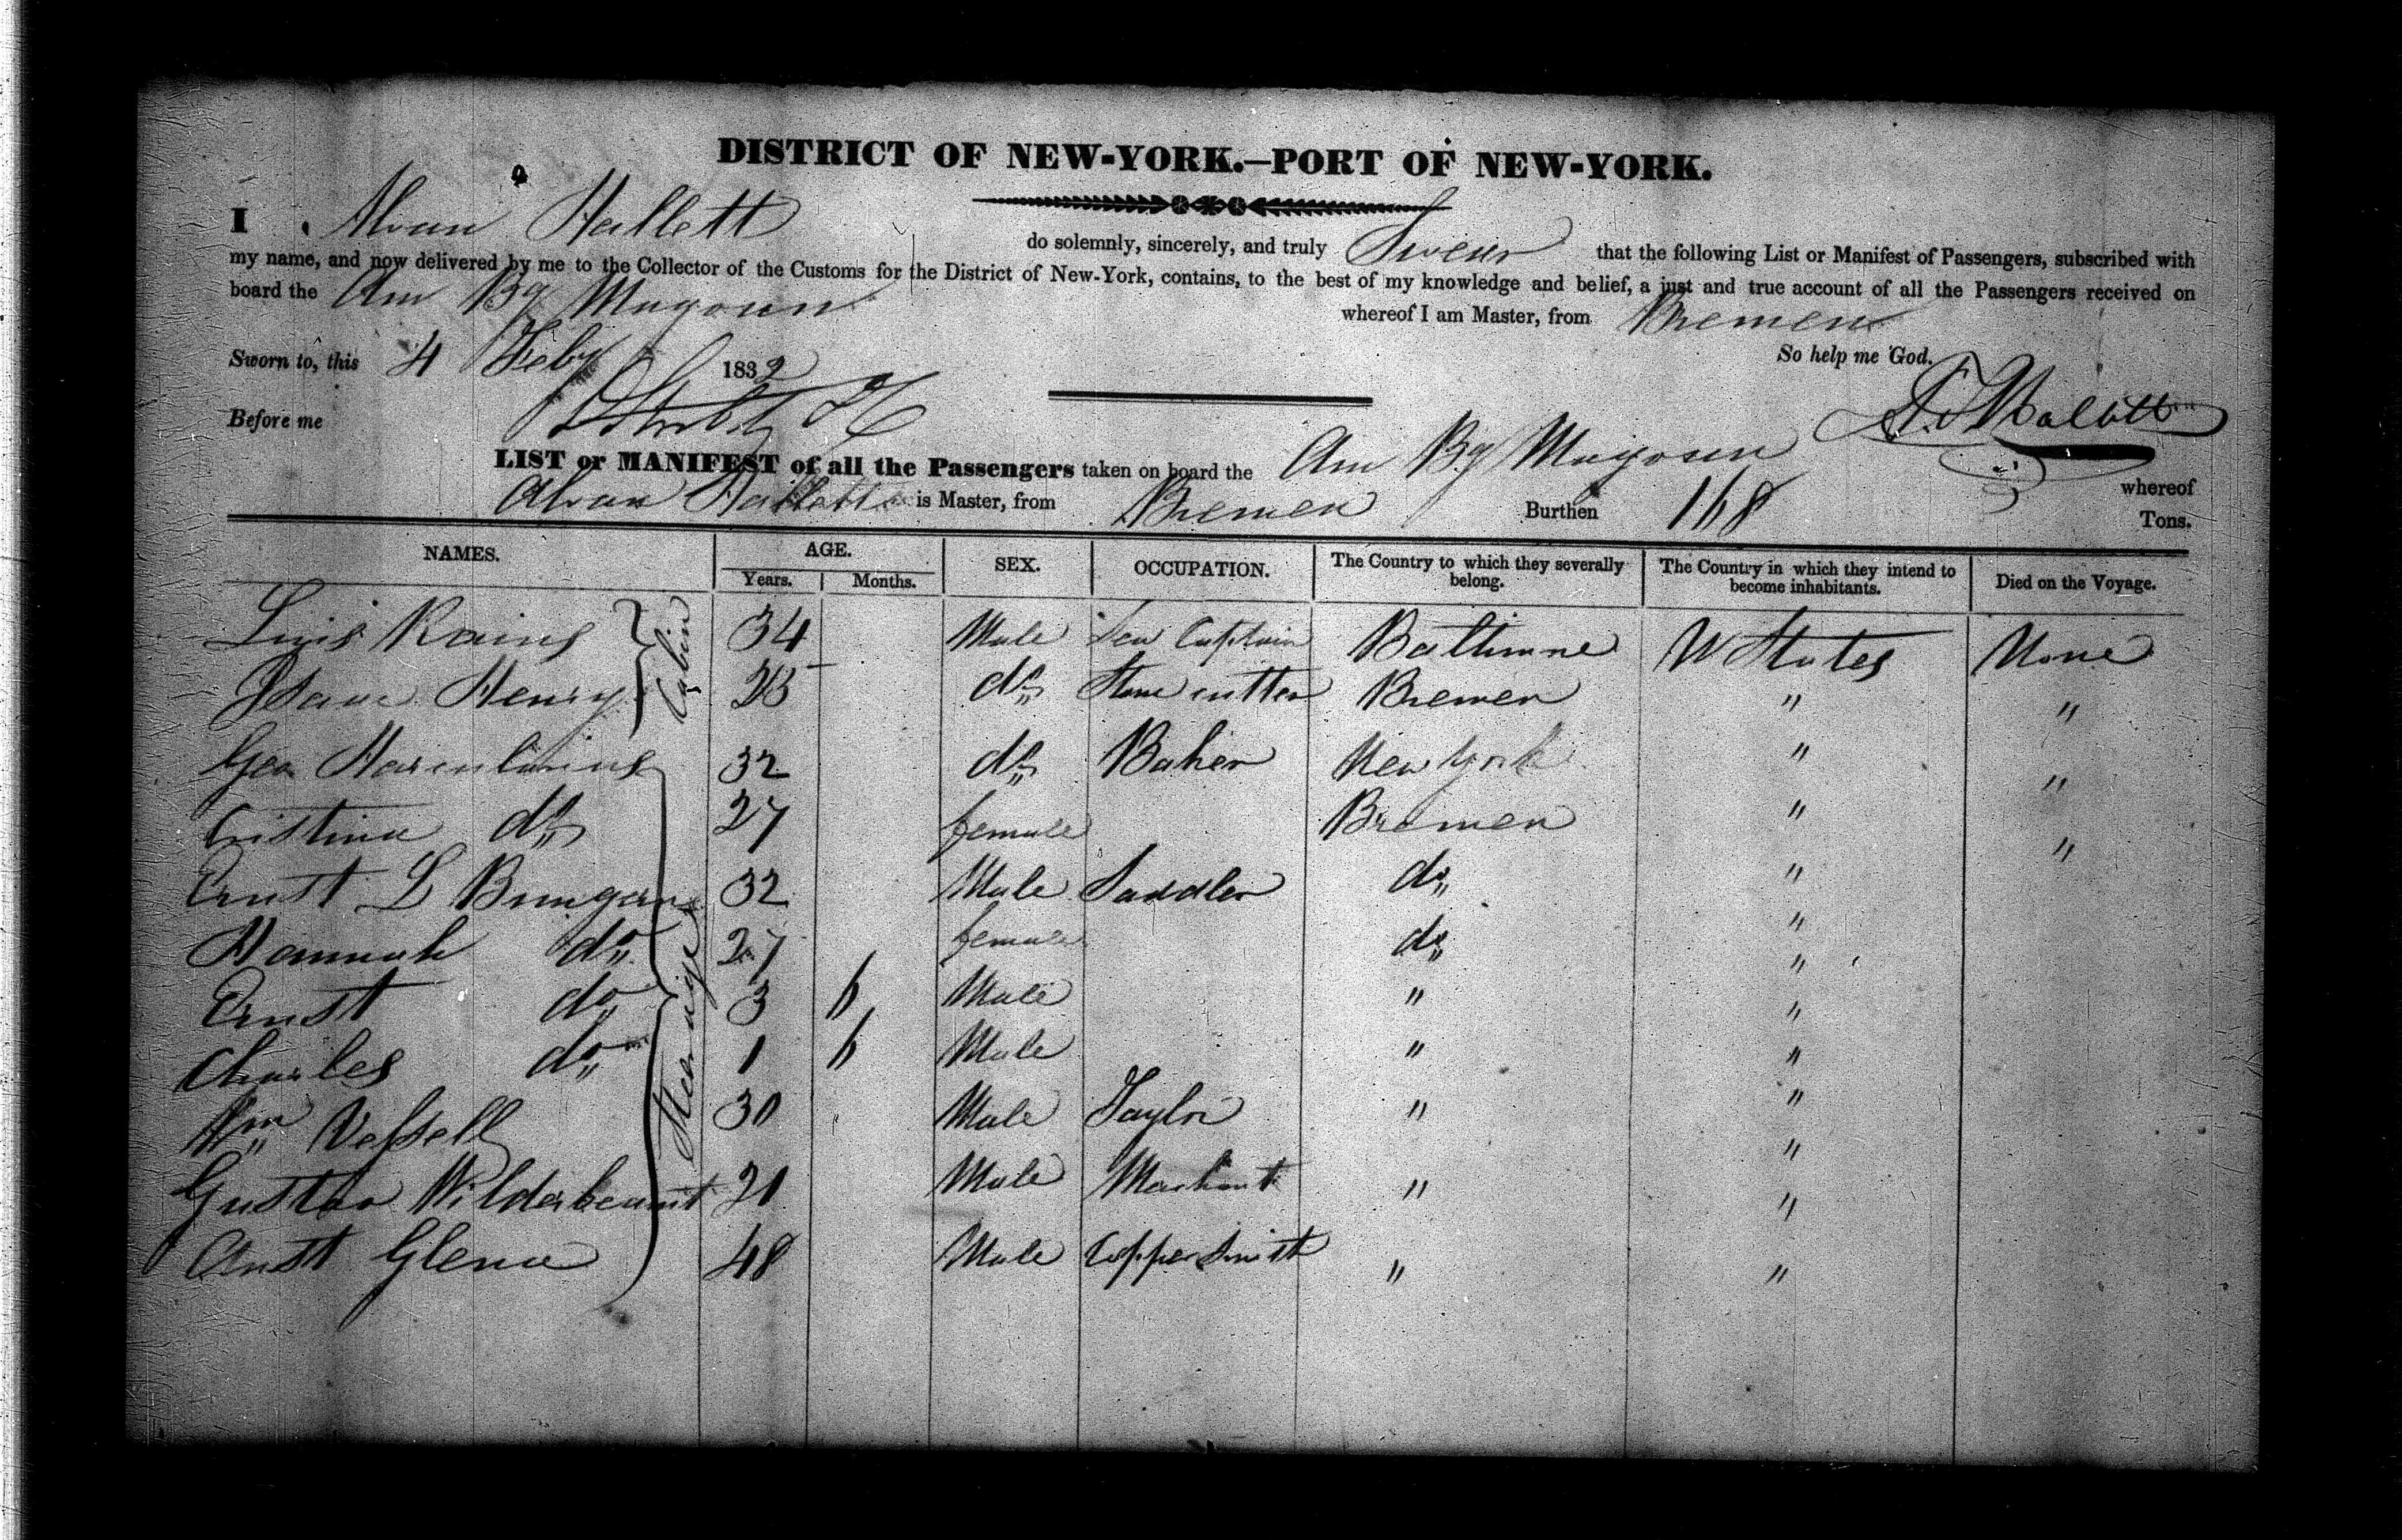 DISTRICT OF NEW-YORK.—PORT OF NEW-YORK.
I Alvan Hallett do solemnly, sincerely, and truly Swear that the following List or Manifest of Passengers, subscribed with
my name, and now delivered by me to the Collector of the Customs for the District of New-York, contains, to the best of my knowledge and belief, a just and true account of all the Passengers received on
board the Am Bg Magoun whereof I am Master, from Bremen
Sworn to, this 4 Feby 1832 So help me God.
Before me
LIST or MANIFEST of all the Passengers taken on board the Am Bg Magoun whereof
Alvan Hallett is Master, from Bremen Burthen 168 Tons.
NAMES. AGE. SEX. OCCUPATION. The Country to which they severally belong. The Country in which they intend to become inhabitants. Died on the Voyage.
Years. Months.
Cabin
Luis Rains 34 Male Sea Captain Baltimore U States None
Isaac Henry 25 do Stone cutter Bremen " "
Steerage
Geo 32 do Baker New York " "
Cristina do 27 female Bremen " "
Ernst L 32 Male Saddler do "
Hannah do 27 female do "
Ernst do 3 6 Male " "
Charles do 1 6 Male " "
Wm Vessell 30 Male Taylor " "
Gustav 21 Male " "
Glena 48 Male Copper Smith " "